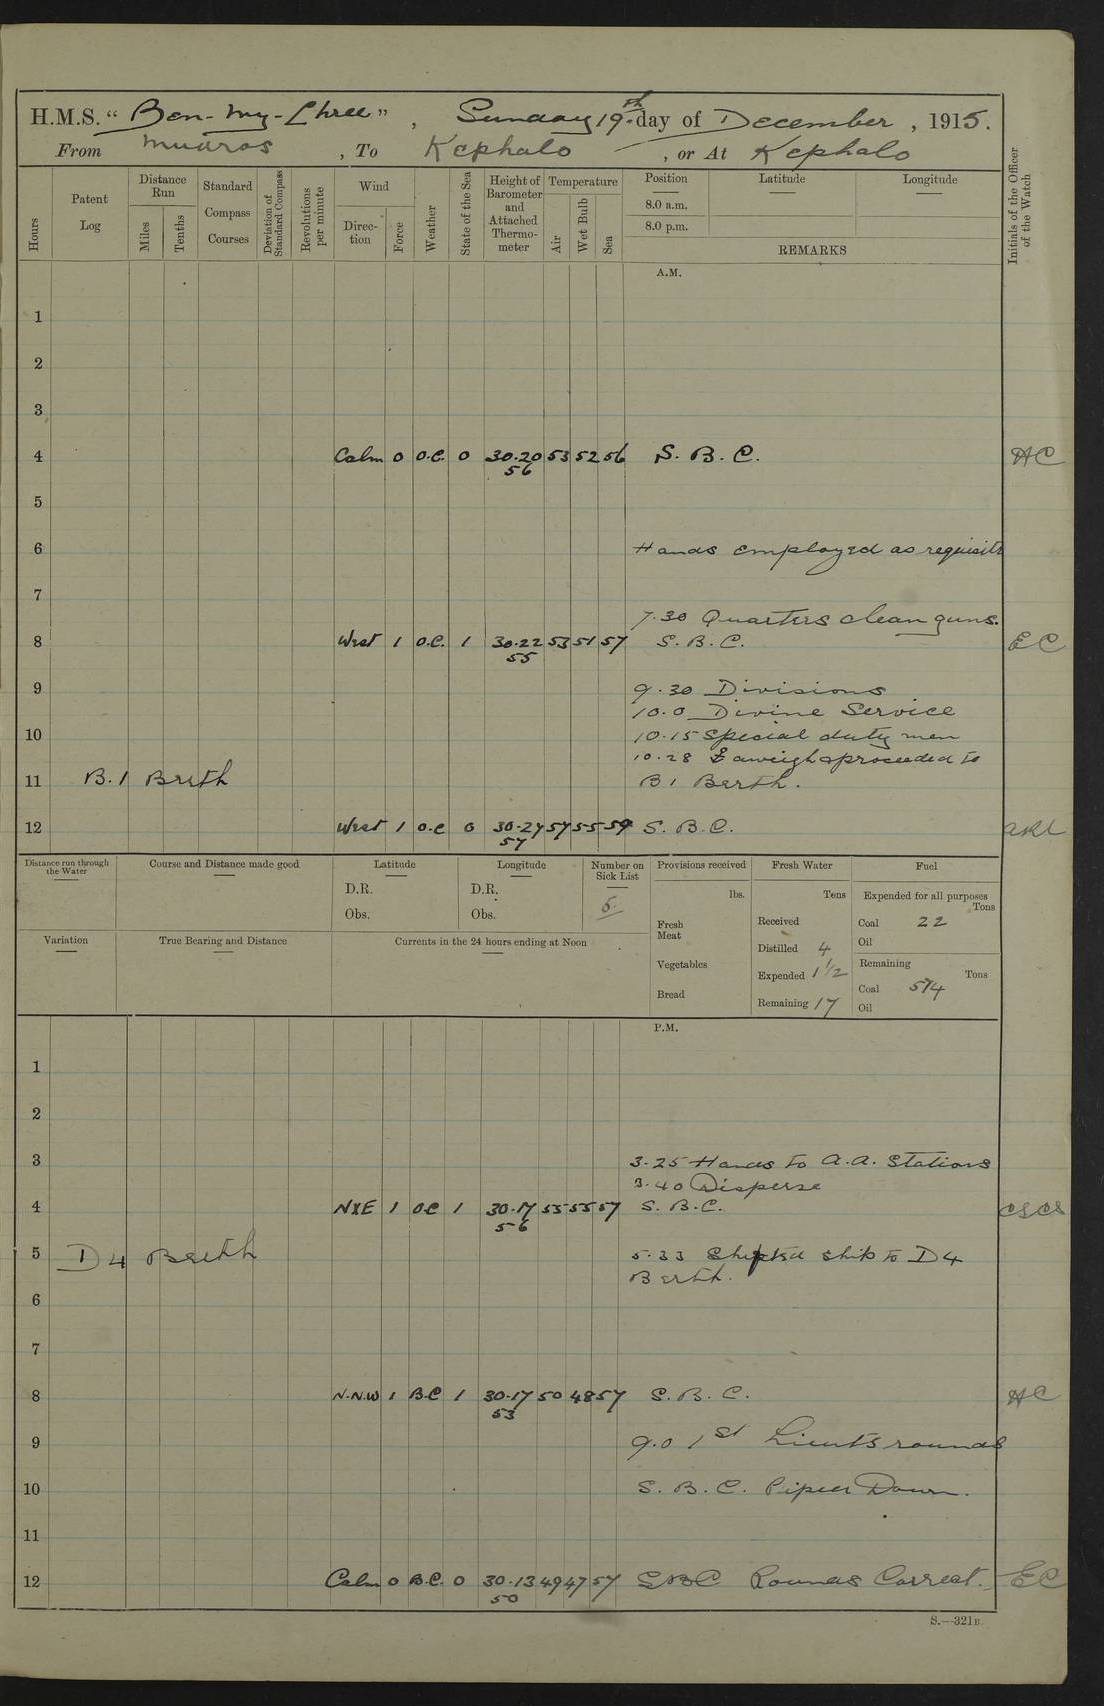 H.M.S. "Ben-my-Chree", Sunday 19th day of December, 1915.
From Mudros, To Kephalo, or At Kephalo
Hours
Patent Log
Distance Run
Miles
Tenths
Standard Compass Courses
Deviation of Standard Compass
Revolutions per minute
Wind
Direction
Force
Weather
State of the Sea
Height of Barometer and Attached Thermometer
Temperature
Air
Wet Bulb
Sea
Position
8.0 a.m.
8.0 p.m.
Latitude
Longitude
REMARKS
Initials of the Officer of the Watch
A.M.
1
2
3
4 Calm 0 O.C. 0 30.20 53 52 56 S. B. C. HC
56
5
6 Hands employed as requisite
7
7.30 Quarters clean guns.
8 West 1 O.C. 1 30.22 53 51 57 S. B. C. EC
55
9 9.30 Divisions
10.0 Divine Service
10 10.15 Special duty men
10.28 aweigh & proceeded to
11 B.1 Berth B1 Berth.
12 West 1 O.C 0 30.24 57 55 59 S. B. C.
57
Distance run through the Water
Course and Distance made good
Latitude
D.R.
Obs.
Longitude
D.R.
Obs.
Number on Sick List
5
Provisions received
lbs.
Fresh Meat
Vegetables
Bread
Fresh Water
Tons
Received
Distilled 4
Expended 1 1/2
Remaining 17
Fuel
Expended for all purposes
Tons
Coal 22
Oil
Remaining
Tons
Coal 574
Oil
Variation
True Bearing and Distance
Currents in the 24 hours ending at Noon
P.M.
1
2
3 3.25 Hands to A.A. Stations
3.40 Disperse
4 NXE 1 OC 1 30.17 55 55 57 S. B. C.
56
5 D4 Berth 5.33 Shifted ship to D4
Berth.
6
7
8 N.N.W 1 B.C 1 30.17 50 48 57 S. B. C. HC
53
9 9.0 1st Lieuts rounds
10 S. B. C. Piped Down.
11
12 Calm 0 B.C. 0 30.13 49 47 57 SBC Rounds Correct. EC
50
S.—321B.